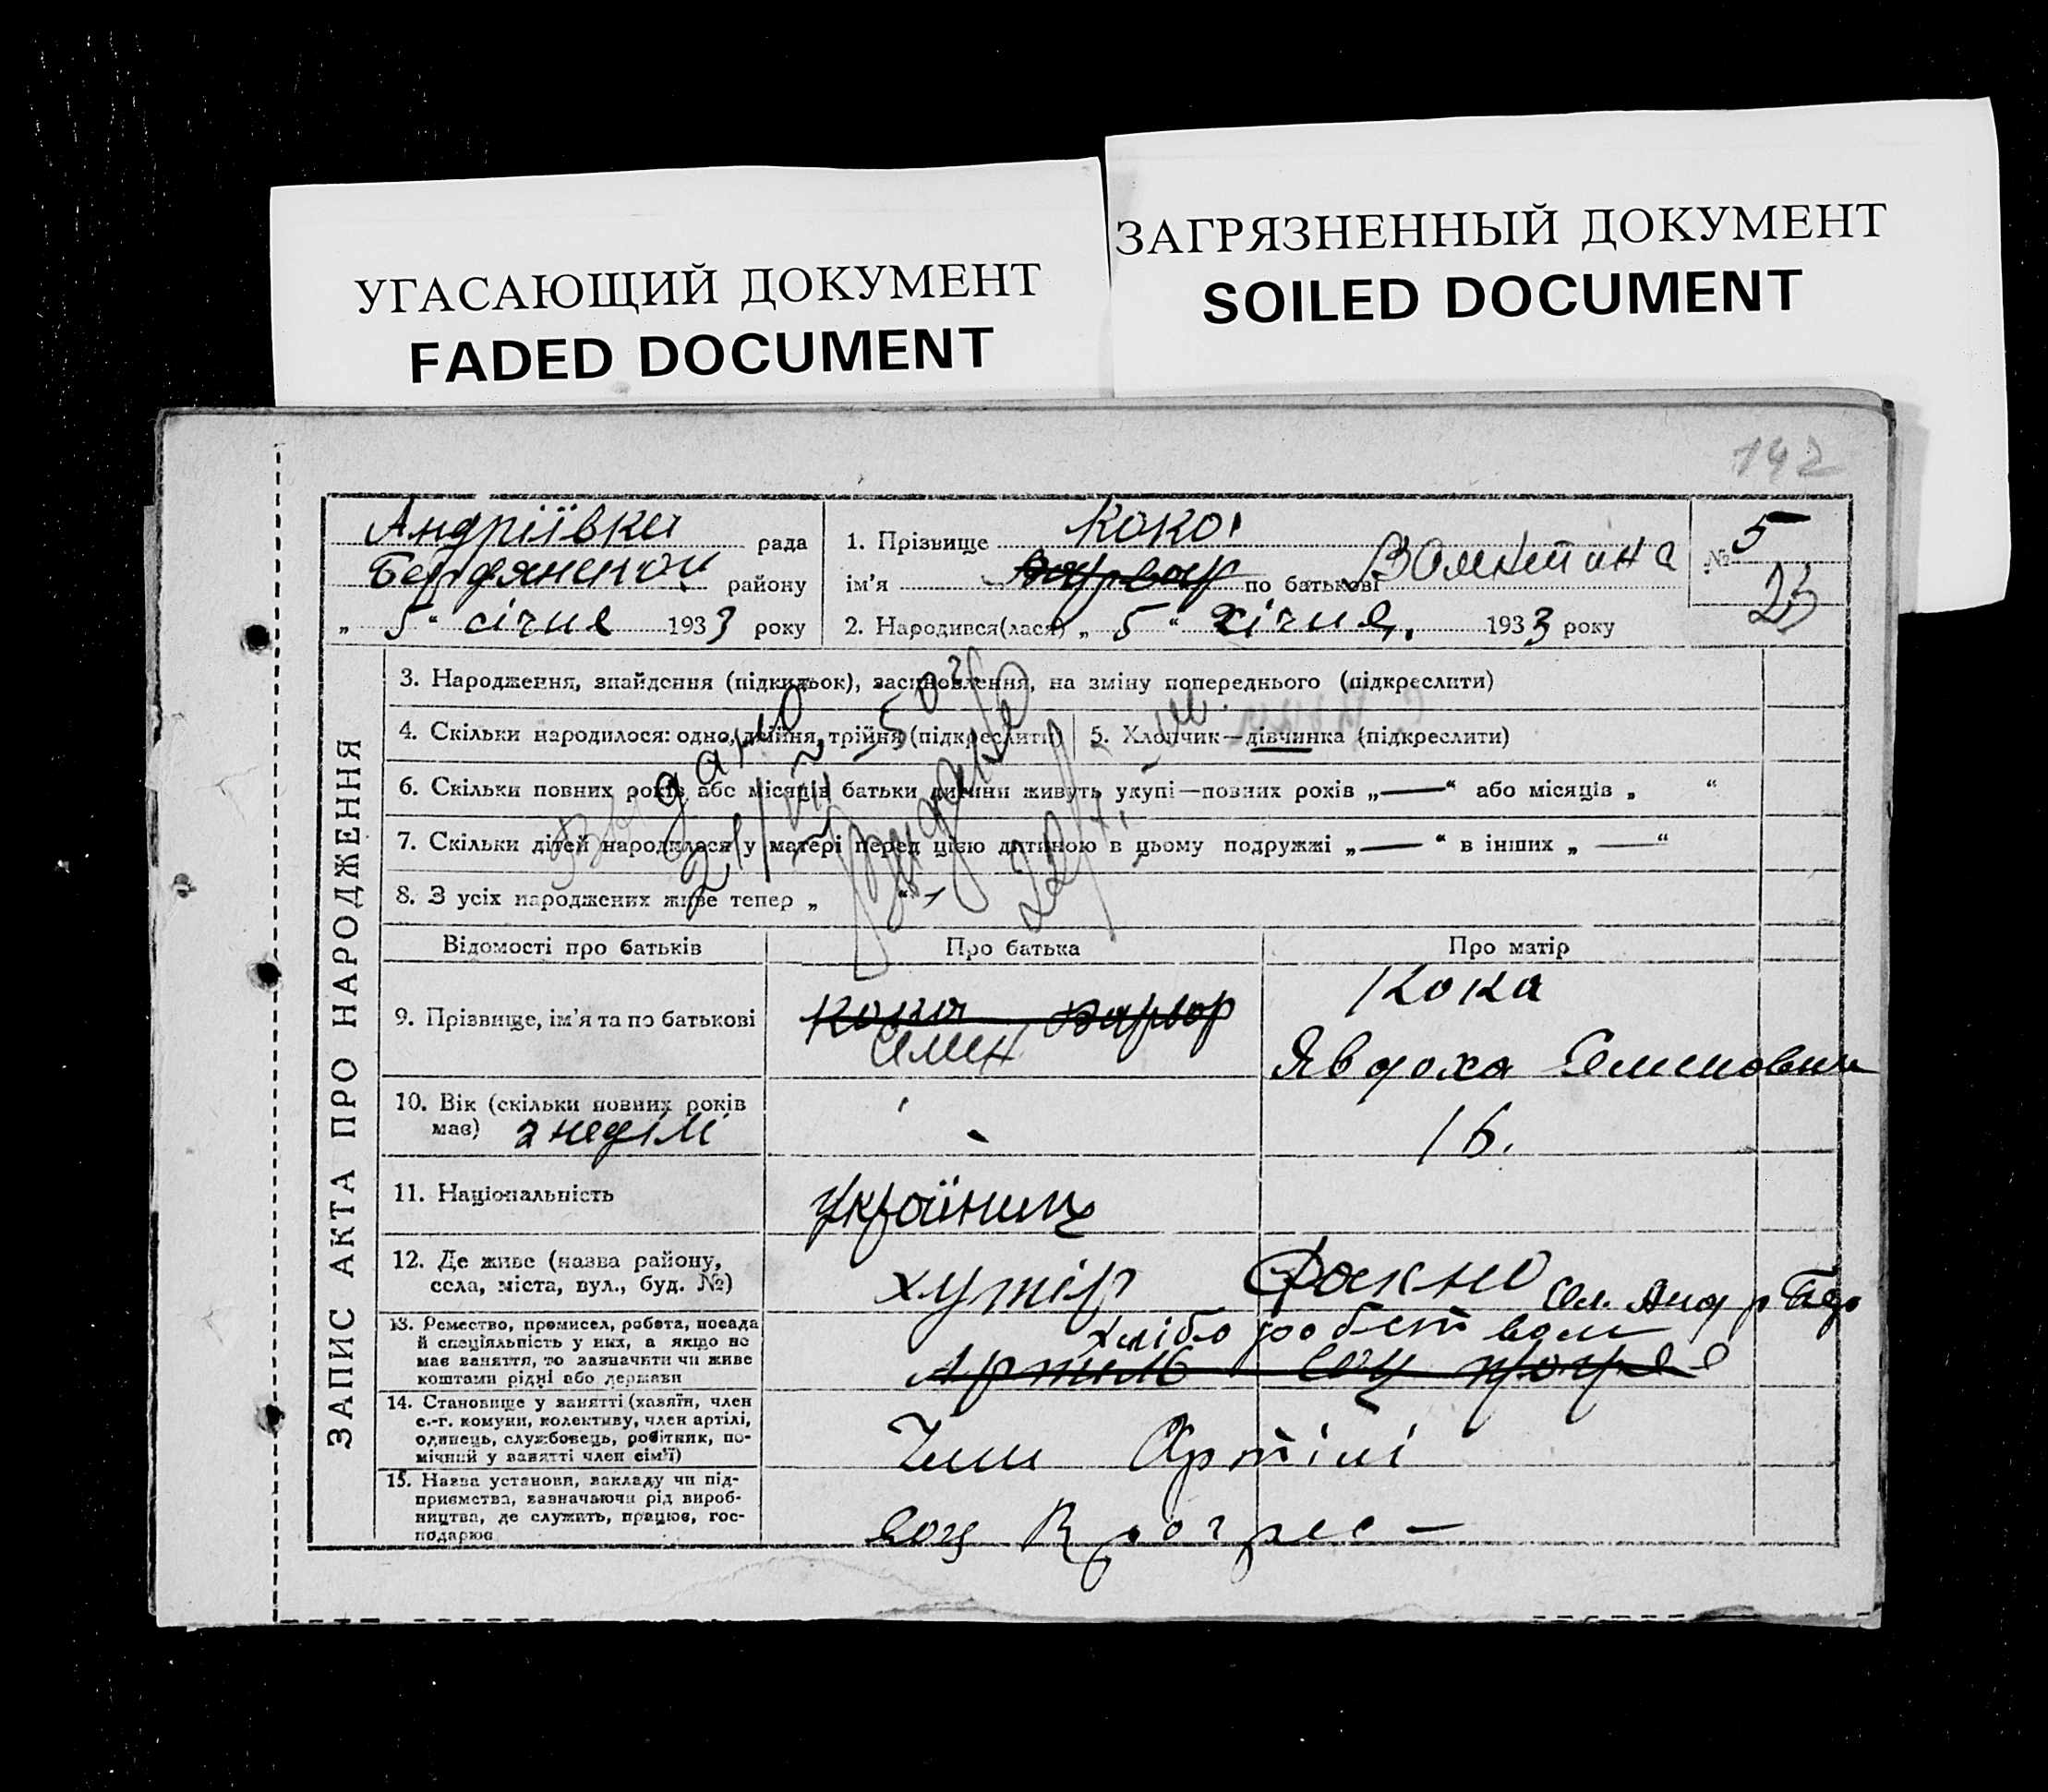 УГАСАЮЩИЙ ДОКУМЕНТ
FADED DOCUMENT
ЗАГРЯЗНЕННЫЙ ДОКУМЕНТ
SOILED DOCUMENT
142
Андріївка рада
району
„ 5 “ січня 1933 року
1. Прізвище Кока
ім'я по батькові
2. Народився(лася) „ 5 “ січня 1933 року
№ 5
23
ЗАПИС АКТА ПРО НАРОДЖЕННЯ
3. Народження, знайдення (підкидьок), засиновлення, на зміну попереднього (підкреслити)
4. Скільки народилося: одно, двійня, трійня (підкреслити)
5. Хлопчик—дівчинка (підкреслити)
6. Скільки повних років або місяців батьки дитини живуть укупі—повних років „—“ або місяців „ “
7. Скільки дітей народилося у матері перед цією дитиною в цьому подружжі „—“ в інших „—“
8. З усіх народжених живе тепер „ “
Відомості про батьків
Про батька
Про матір
9. Прізвище, ім'я та по батькові
Кока
Явдоха
10. Вік (скільки повних років
має) 2 неділі
16.
11. Національність
Українець
12. Де живе (назва району,
села, міста, вул., буд. №)
хутір
13. Ремество, промисел, робота, посада
й спеціяльність у них, а якщо не
має заняття, то зазначити чи живе
коштами рідні або держави
хліборобством
Артіль соц прогрес
14. Становище у занятті (хазяїн, член
с.-г. комуни, колективу, член артілі,
одинець, службовець, робітник, по-
мічний у занятті член сім'ї)
Член Артілі
15. Назва установи, закладу чи під-
приємства, зазначаючи рід вироб-
ництва, де служить, працює, гос-
подарює
Соц Прогрес —